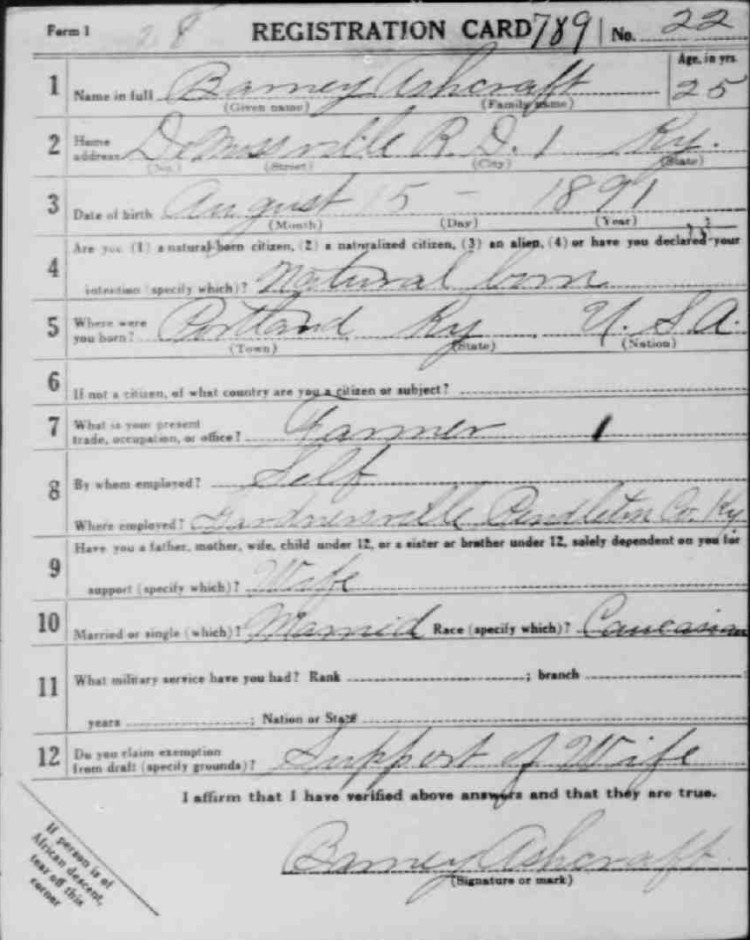 Form 1 28 REGISTRATION CARD 789 No. 22
1 Name in full Barney Ashcraft Age, in yrs. 25
(Given name) (Family name)
2 Home address DeMossville R. D. 1 Ky.
(No.) (Street) (City) (State)
3 Date of birth August 15 - 1891
(Month) (Day) (Year)
Are you (1) a natural-born citizen, (2) a naturalized citizen, (3) an alien, (4) or have you declared your
4 intention (specify which)? Natural born
5 Where were you born? Portland Ky. U. S. A.
(Town) (State) (Nation)
6 If not a citizen, of what country are you a citizen or subject?
7 What is your present trade, occupation, or office? Farmer 1
8 By whom employed? Self
Where employed? Gardnersville Pendleton Co. Ky
Have you a father, mother, wife, child under 12, or a sister or brother under 12, solely dependent on you for
9 support (specify which)? Wife
10 Married or single (which)? Married Race (specify which)? Caucasian
11 What military service have you had? Rank ; branch
years ; Nation or State
12 Do you claim exemption from draft (specify grounds)? Support of Wife
I affirm that I have verified above answers and that they are true.
Barney Ashcraft
(Signature or mark)
If person is of
African descent,
tear off this
corner